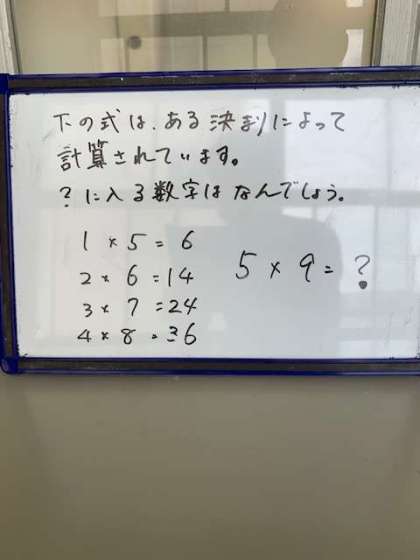 下の式は、ある決まりによって
計算されています。
?に入る数字はなんでしょう。
1×5=6
2×6=14
3×7=24
4×8=36
5×9=?